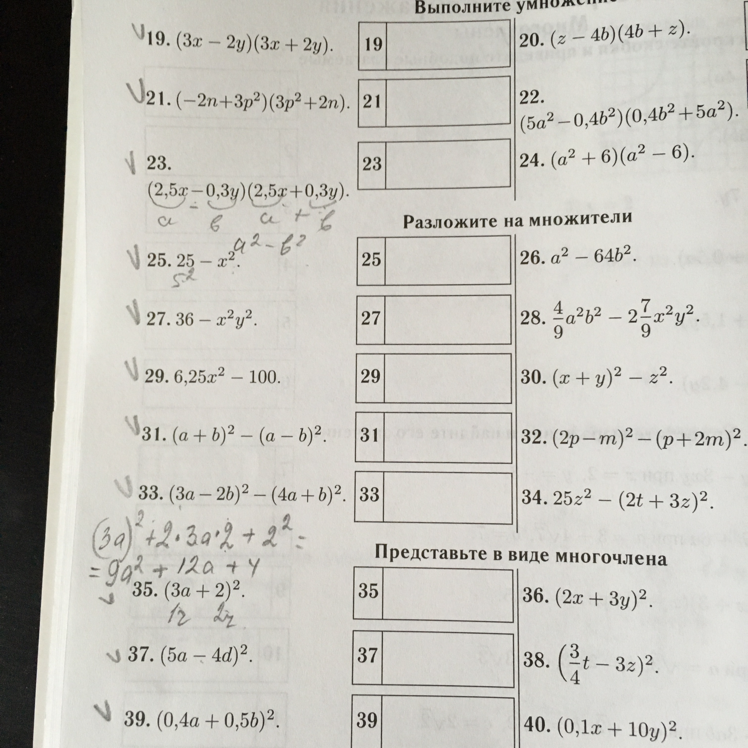 Выполните умножение
19. (3x − 2y)(3x + 2y). 19
20. (z − 4b)(4b + z).
21. (−2n+3p²)(3p²+2n). 21
22.
(5a²−0,4b²)(0,4b²+5a²).
23.
(2,5x−0,3y)(2,5x+0,3y). 23
a − b a + b
a² − b²
24. (a² + 6)(a² − 6).
Разложите на множители
25. 25 − x². 25
5²
26. a² − 64b².
27. 36 − x²y². 27
28. 4/9 a²b² − 2 7/9 x²y².
29. 6,25x² − 100. 29
30. (x + y)² − z².
31. (a + b)² − (a − b)². 31
32. (2p−m)² −(p+2m)².
33. (3a − 2b)² −(4a + b)². 33
34. 25z² − (2t + 3z)².
(3a)² + 2·3a·2 + 2² =
= 9a² + 12a + 4
Представьте в виде многочлена
35. (3a + 2)². 35
36. (2x + 3y)².
37. (5a − 4d)². 37
38. (3/4 t − 3z)².
39. (0,4a + 0,5b)². 39
40. (0,1x + 10y)².